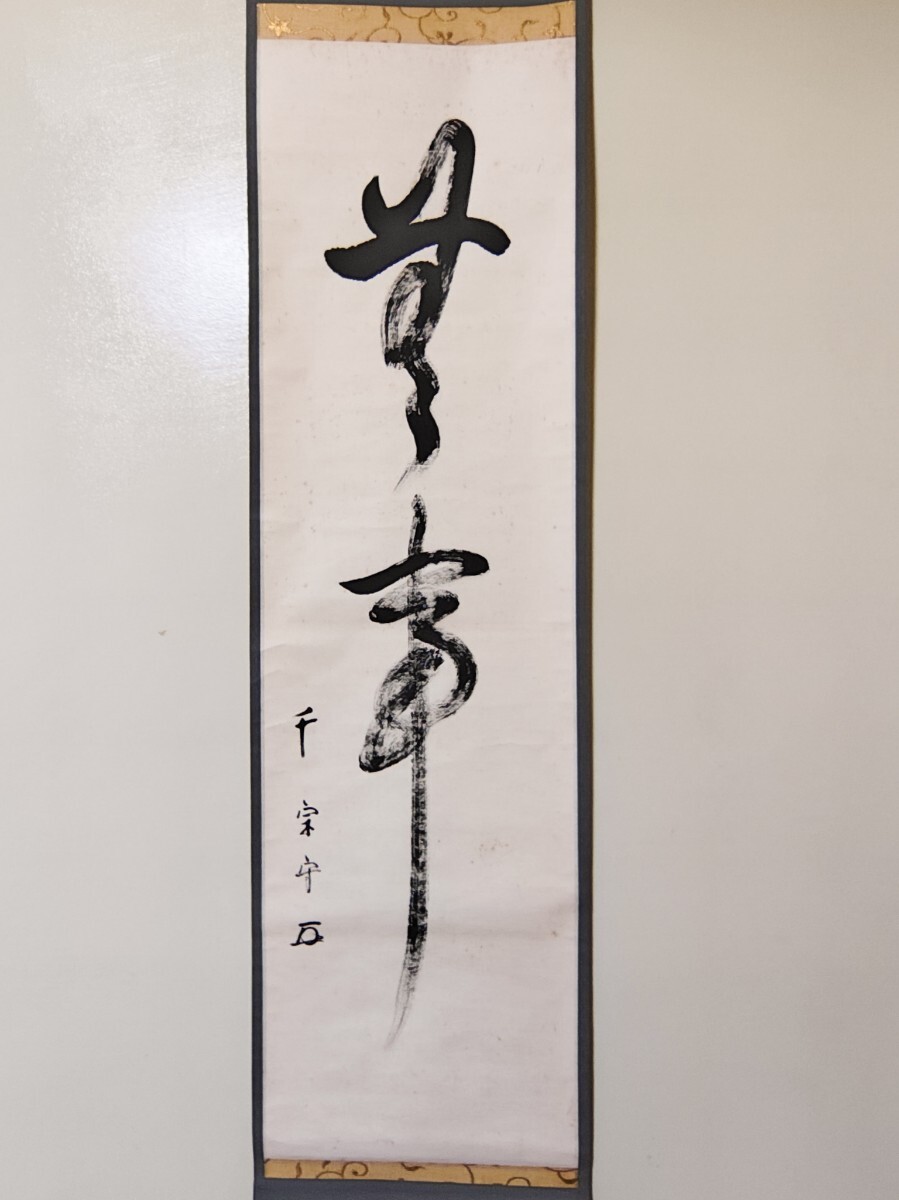 無事
千宗守